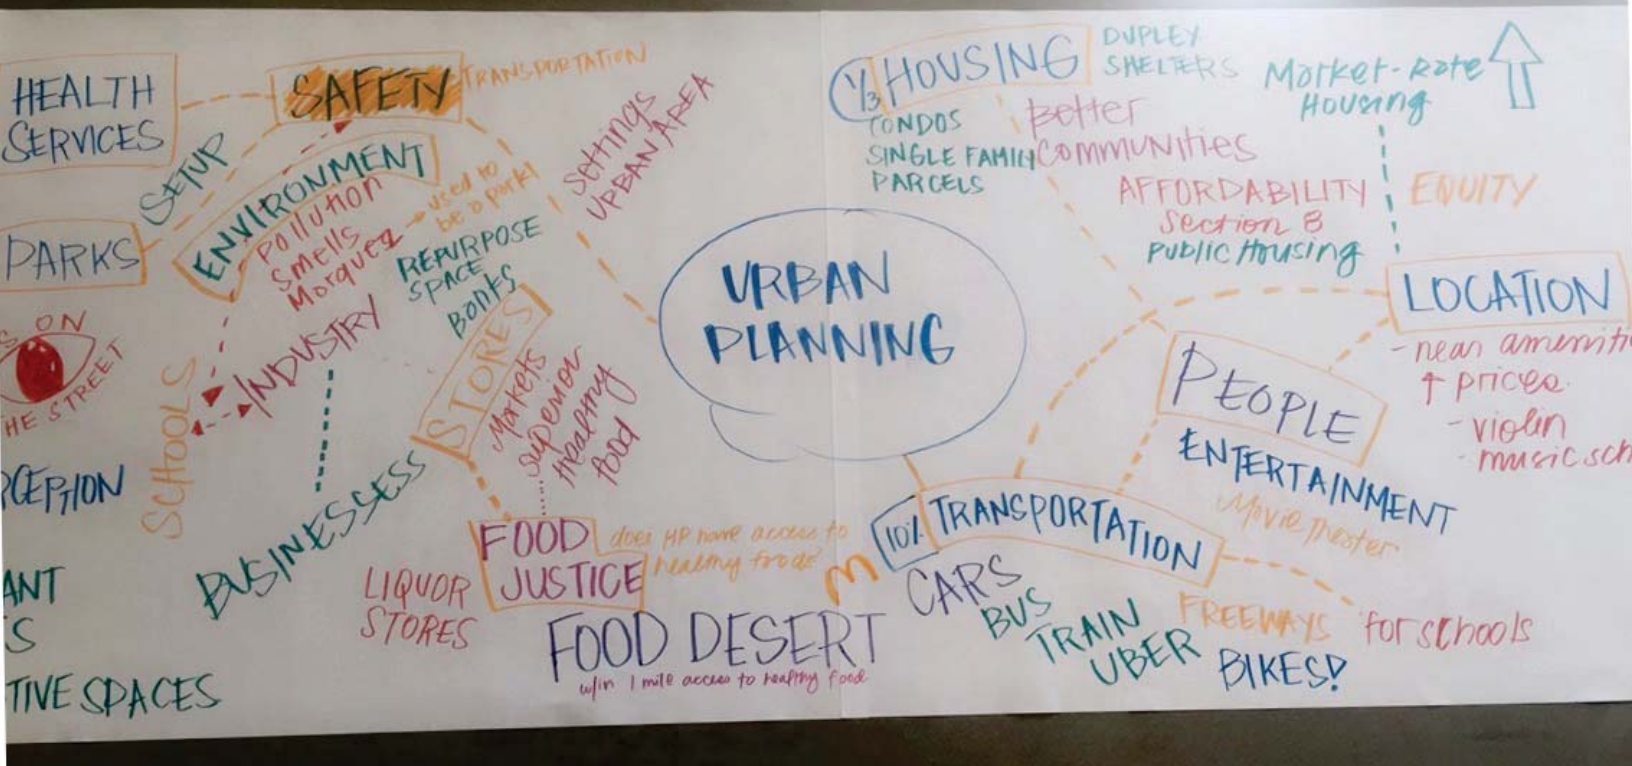 HEALTH
SERVICES
SAFETY
TRANSPORTATION
SETUP
PARKS
ENVIRONMENT
pollution
smells
Marquez
used to
be a park!
REPURPOSE
SPACE
Banks
settings
URBAN AREA
S ON
HE STREET
SCHOOLS
INDUSTRY
STORES
Markets
superior
healthy
food
CEPTION
BUSINESSES
ANT
S
TIVE SPACES
LIQUOR
STORES
FOOD
JUSTICE
does HP have access to
healthy food?
FOOD DESERT
w/in 1 mile access to healthy food
URBAN
PLANNING
1/3 HOUSING
DUPLEY
SHELTERS
CONDOS
SINGLE FAMILY
PARCELS
better
communities
Market-Rate
Housing
AFFORDABILITY
Section 8
Public Housing
EQUITY
LOCATION
- near ameniti
↑ prices
- violin
- music sch
PEOPLE
ENTERTAINMENT
Movie Theater
10% TRANSPORTATION
CARS
BUS
TRAIN
UBER
FREEWAYS
BIKES!
for schools